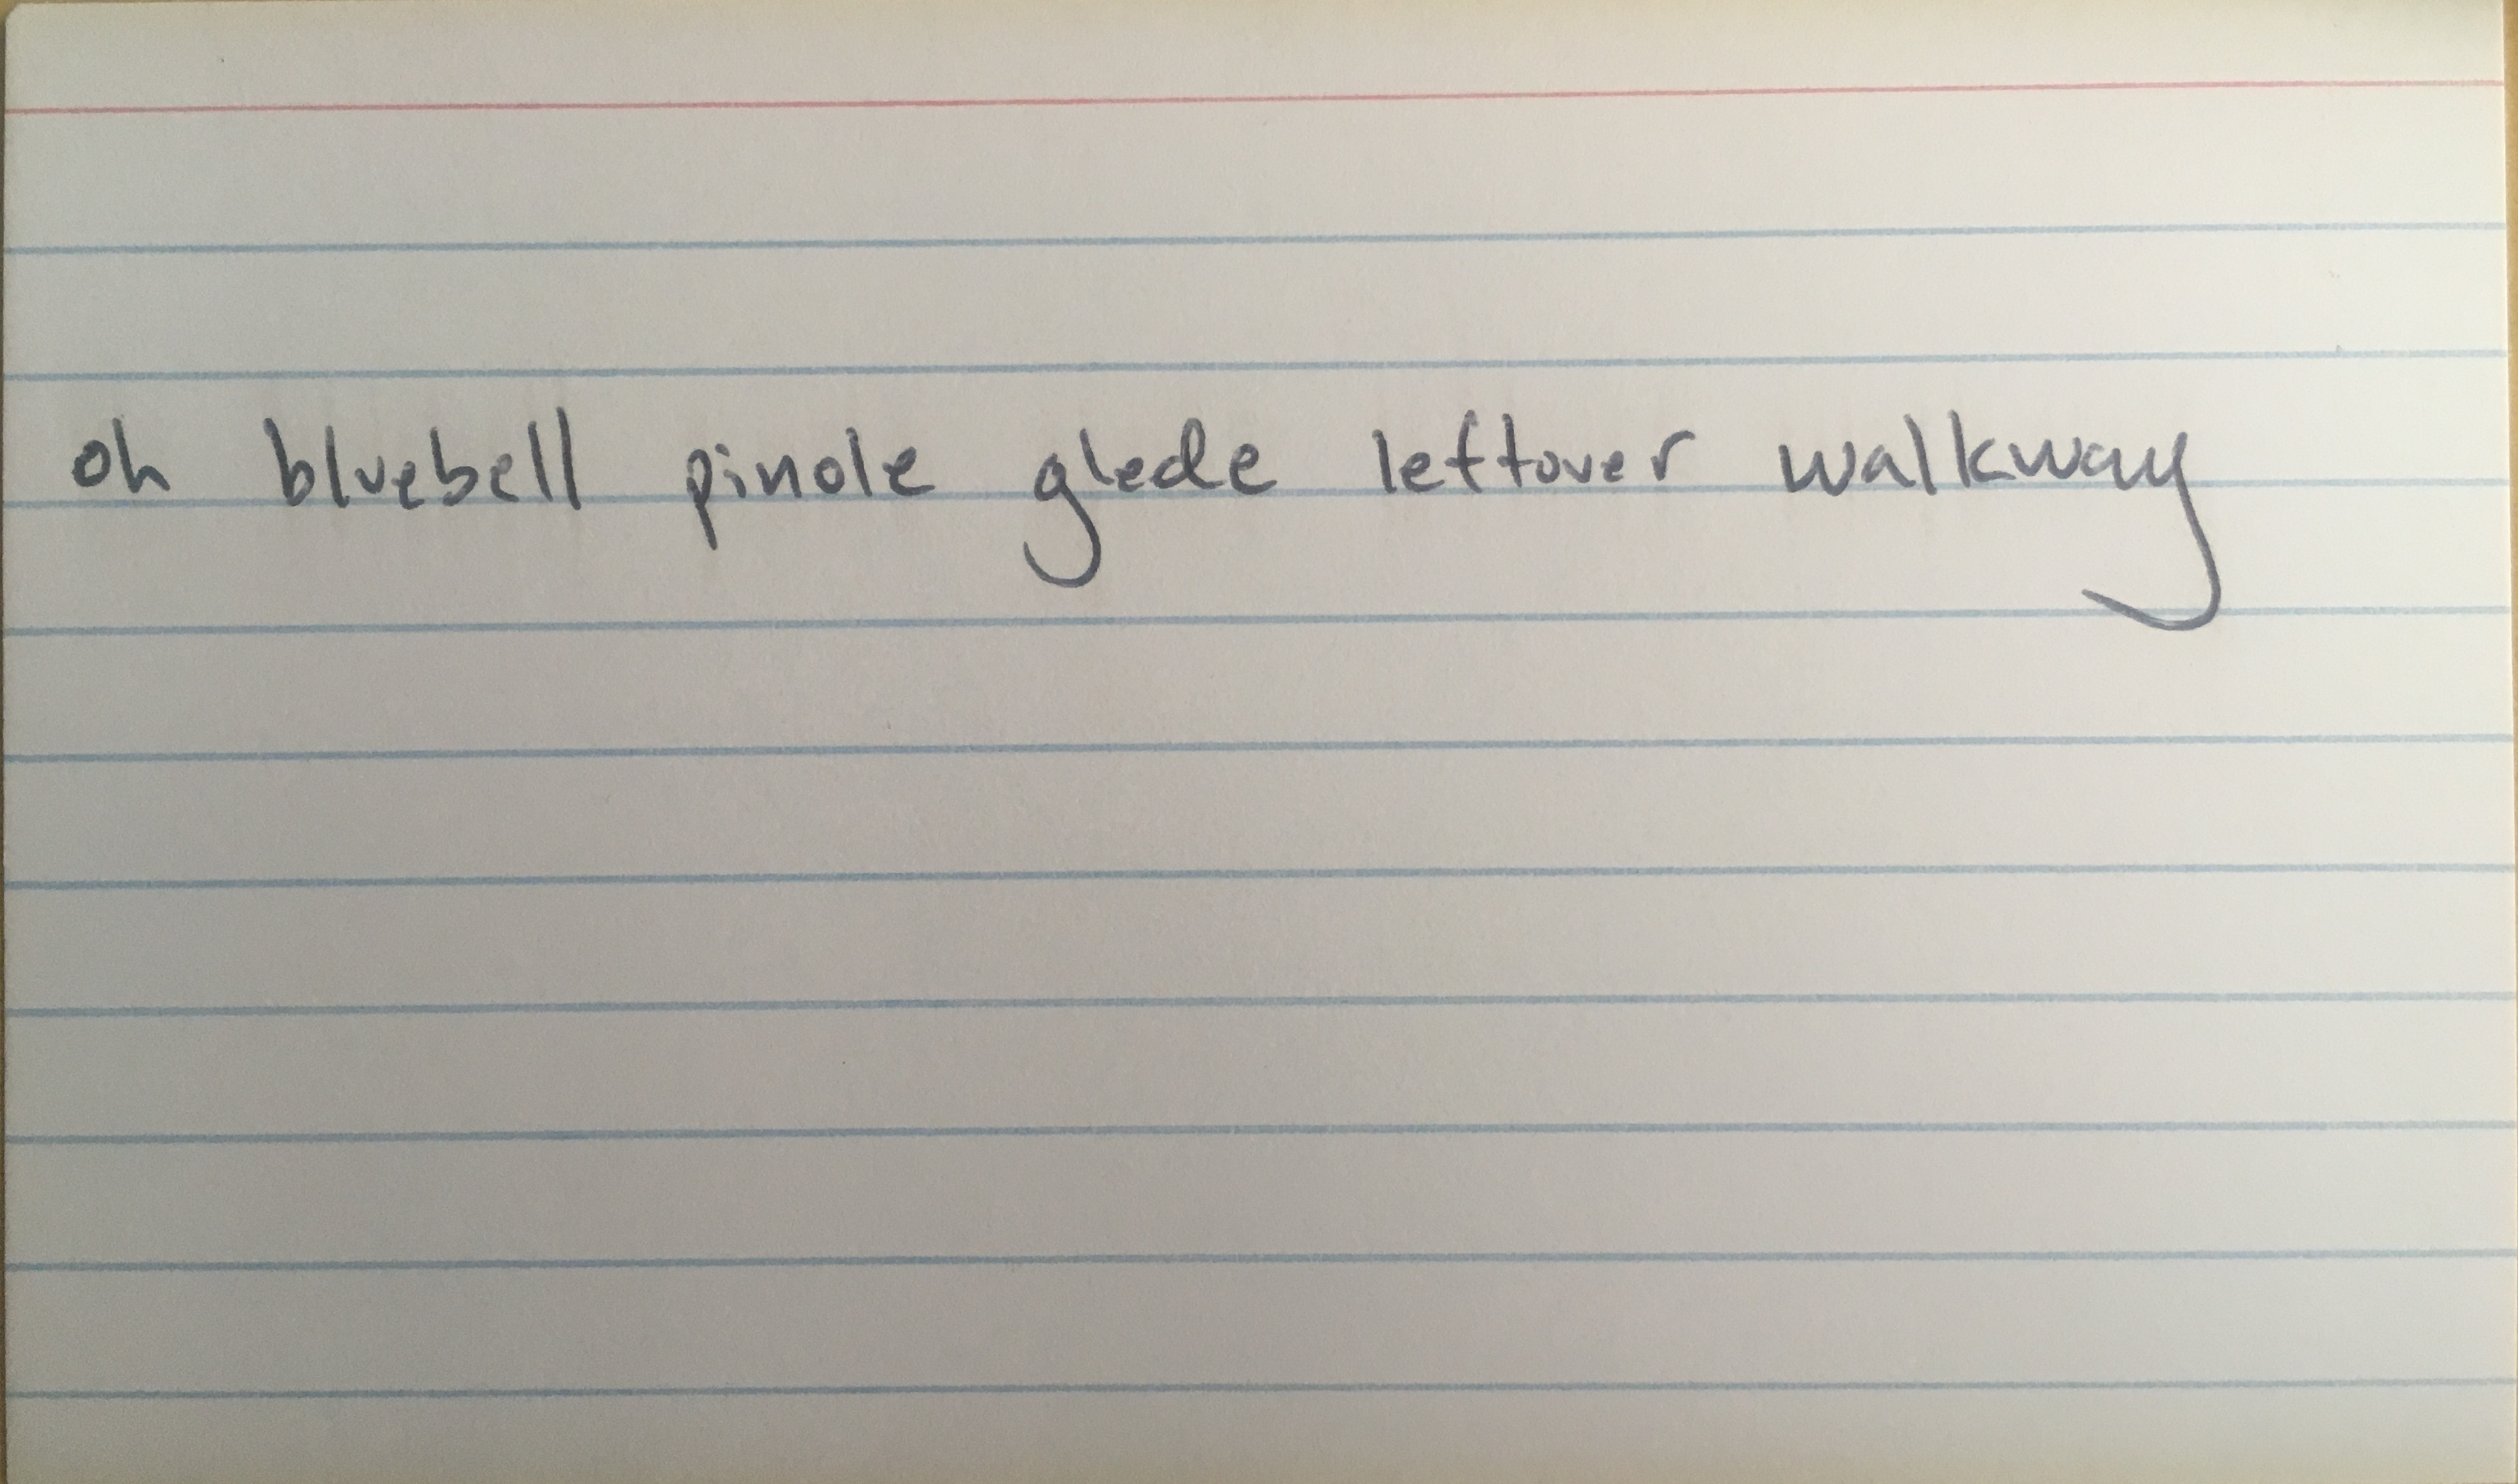 oh bluebell pinole glede leftover walkway